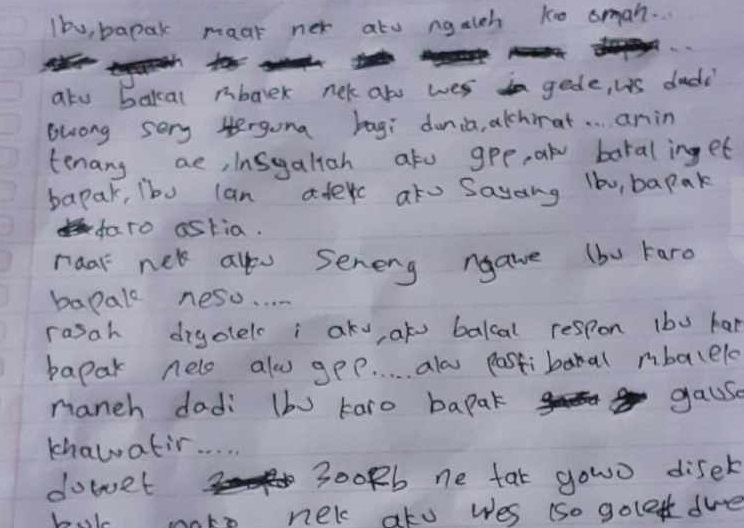 Ibu, bapak maaf nek aku ngaleh ko omah...
aku bakal mbalek nek aku wes gede, ws dadi
uwong seng berguna bagi dunia, akhirat ... amin
tenang ae, Insyallah aku gpp, aku bakal inget
bapak, ibu lan adek aku Sayang Ibu, bapak
karo askia.
maaf nek aku seneng ngawe Ibu karo
bapak nesu.....
rasah digoleki aku, aku bakal respon Ibu kar
bapak nek aku gpp..... aku pasti bakal mbalek
maneh dadi Ibu karo bapak gauso
khawatir.....
duwet 300Rb ne tak gowo disek
nek aku wes iso golek due